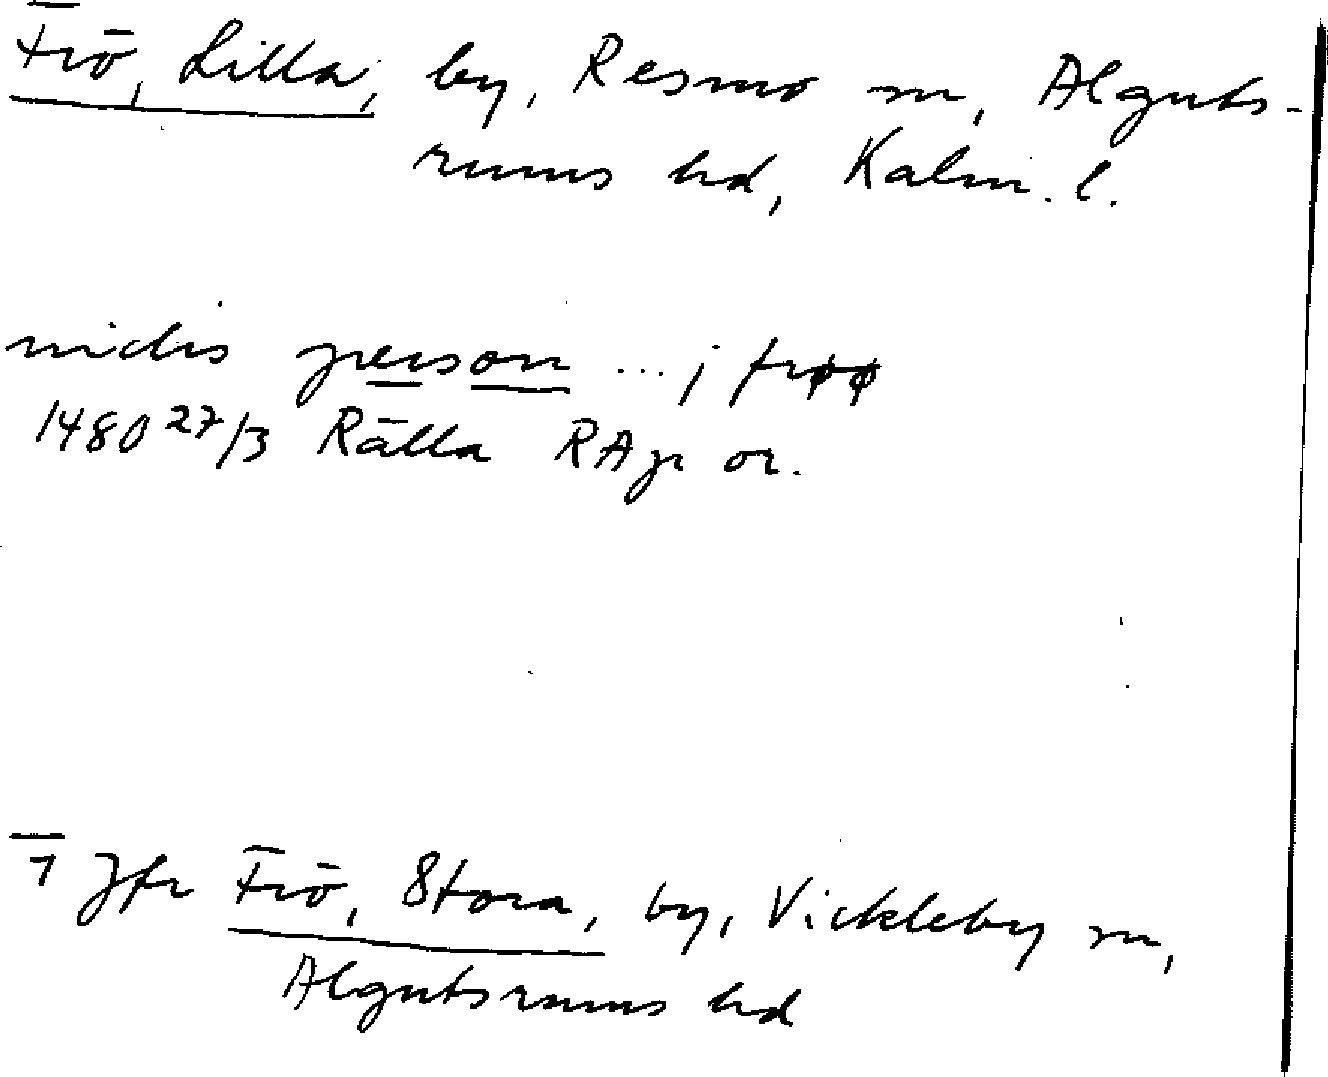 Frö, Lilla, by, Resmo sn, Alguts-
rums hd, Kalm. l.
nichis person ... j frøø
1480 27/3 Rälla RAp or.
1 Jfr Frö, Stora, by, Vickleby sn,
Algutsrums hd